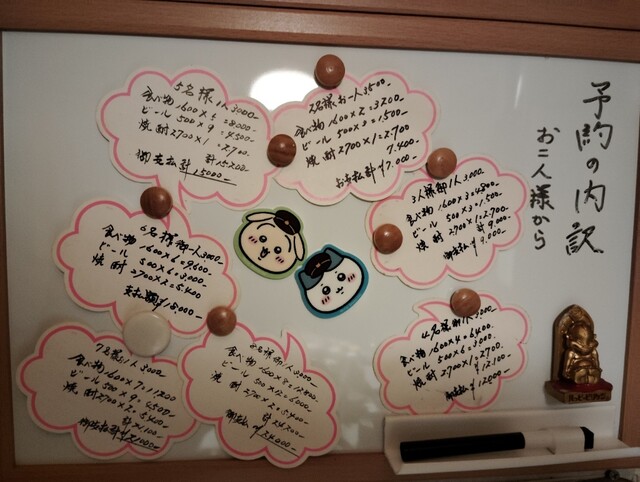 予約の内訳
お二人様から
5名様 1人3000-
食べ物 1600×5=8000-
ビール 500×9=4500-
焼酎 2700×1=2700
計 15,200-
御支払計 15000-
2名様お一人3500-
食べ物 1600×2=3200
ビール 500×3=1,500-
焼酎 2700×1=2,700
7,400-
お支払計 ¥7,000-
3人様御1人3,000-
食べ物 1600×3=4800-
ビール 500×3=1,500-
焼酎 2700×1=2,700
計 9,000-
御支払 ¥9,000-
6名様御一人3000-
食べ物 1600×6=9,600-
ビール 500×6=3,000-
焼酎 2700×2=5,400
支払額 ¥18,000-
4名様御1人3,000-
食べ物 1600×4=6400-
ビール 500×6=3,000-
焼酎 2700×1=2,700
計 ¥12,100-
¥12,000-
8名様御一人3000-
食べ物 1600×8=12,800-
ビール 500×12=6,000-
焼酎 2700×2=5,400-
計 24,200-
御支払 ¥24,000-
7名様 1人3000-
食べ物 1600×7=11,200
ビール 500×9=4500-
焼酎 2700×2=5,400-
御支払計